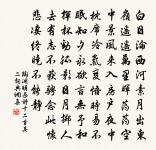 白日淪西河素月出東
嶺遙遙萬里暉蕩蕩空
中景風來入房戶夜中
枕席冷氣變悟時易不
眠知夕永欲言無予和
揮杯勸孤影日月擲人
去有志不獲騁念此懷
悲悽終曉不能靜
陶淵明雜詩十二首其
二